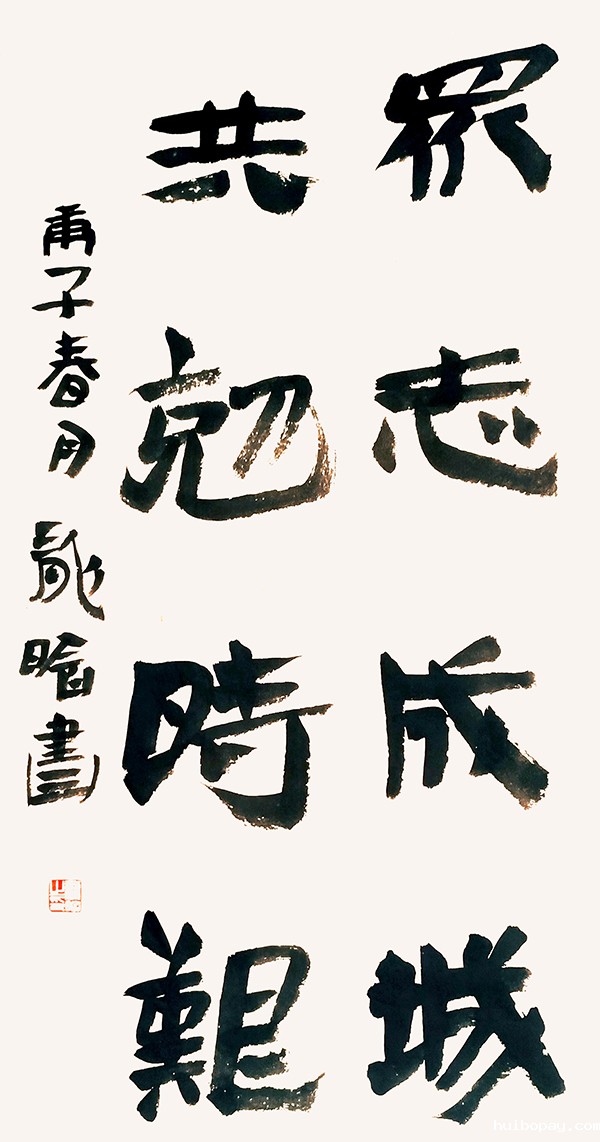 眾志成城
共剋時艱
庚子春月書
huibopay.com